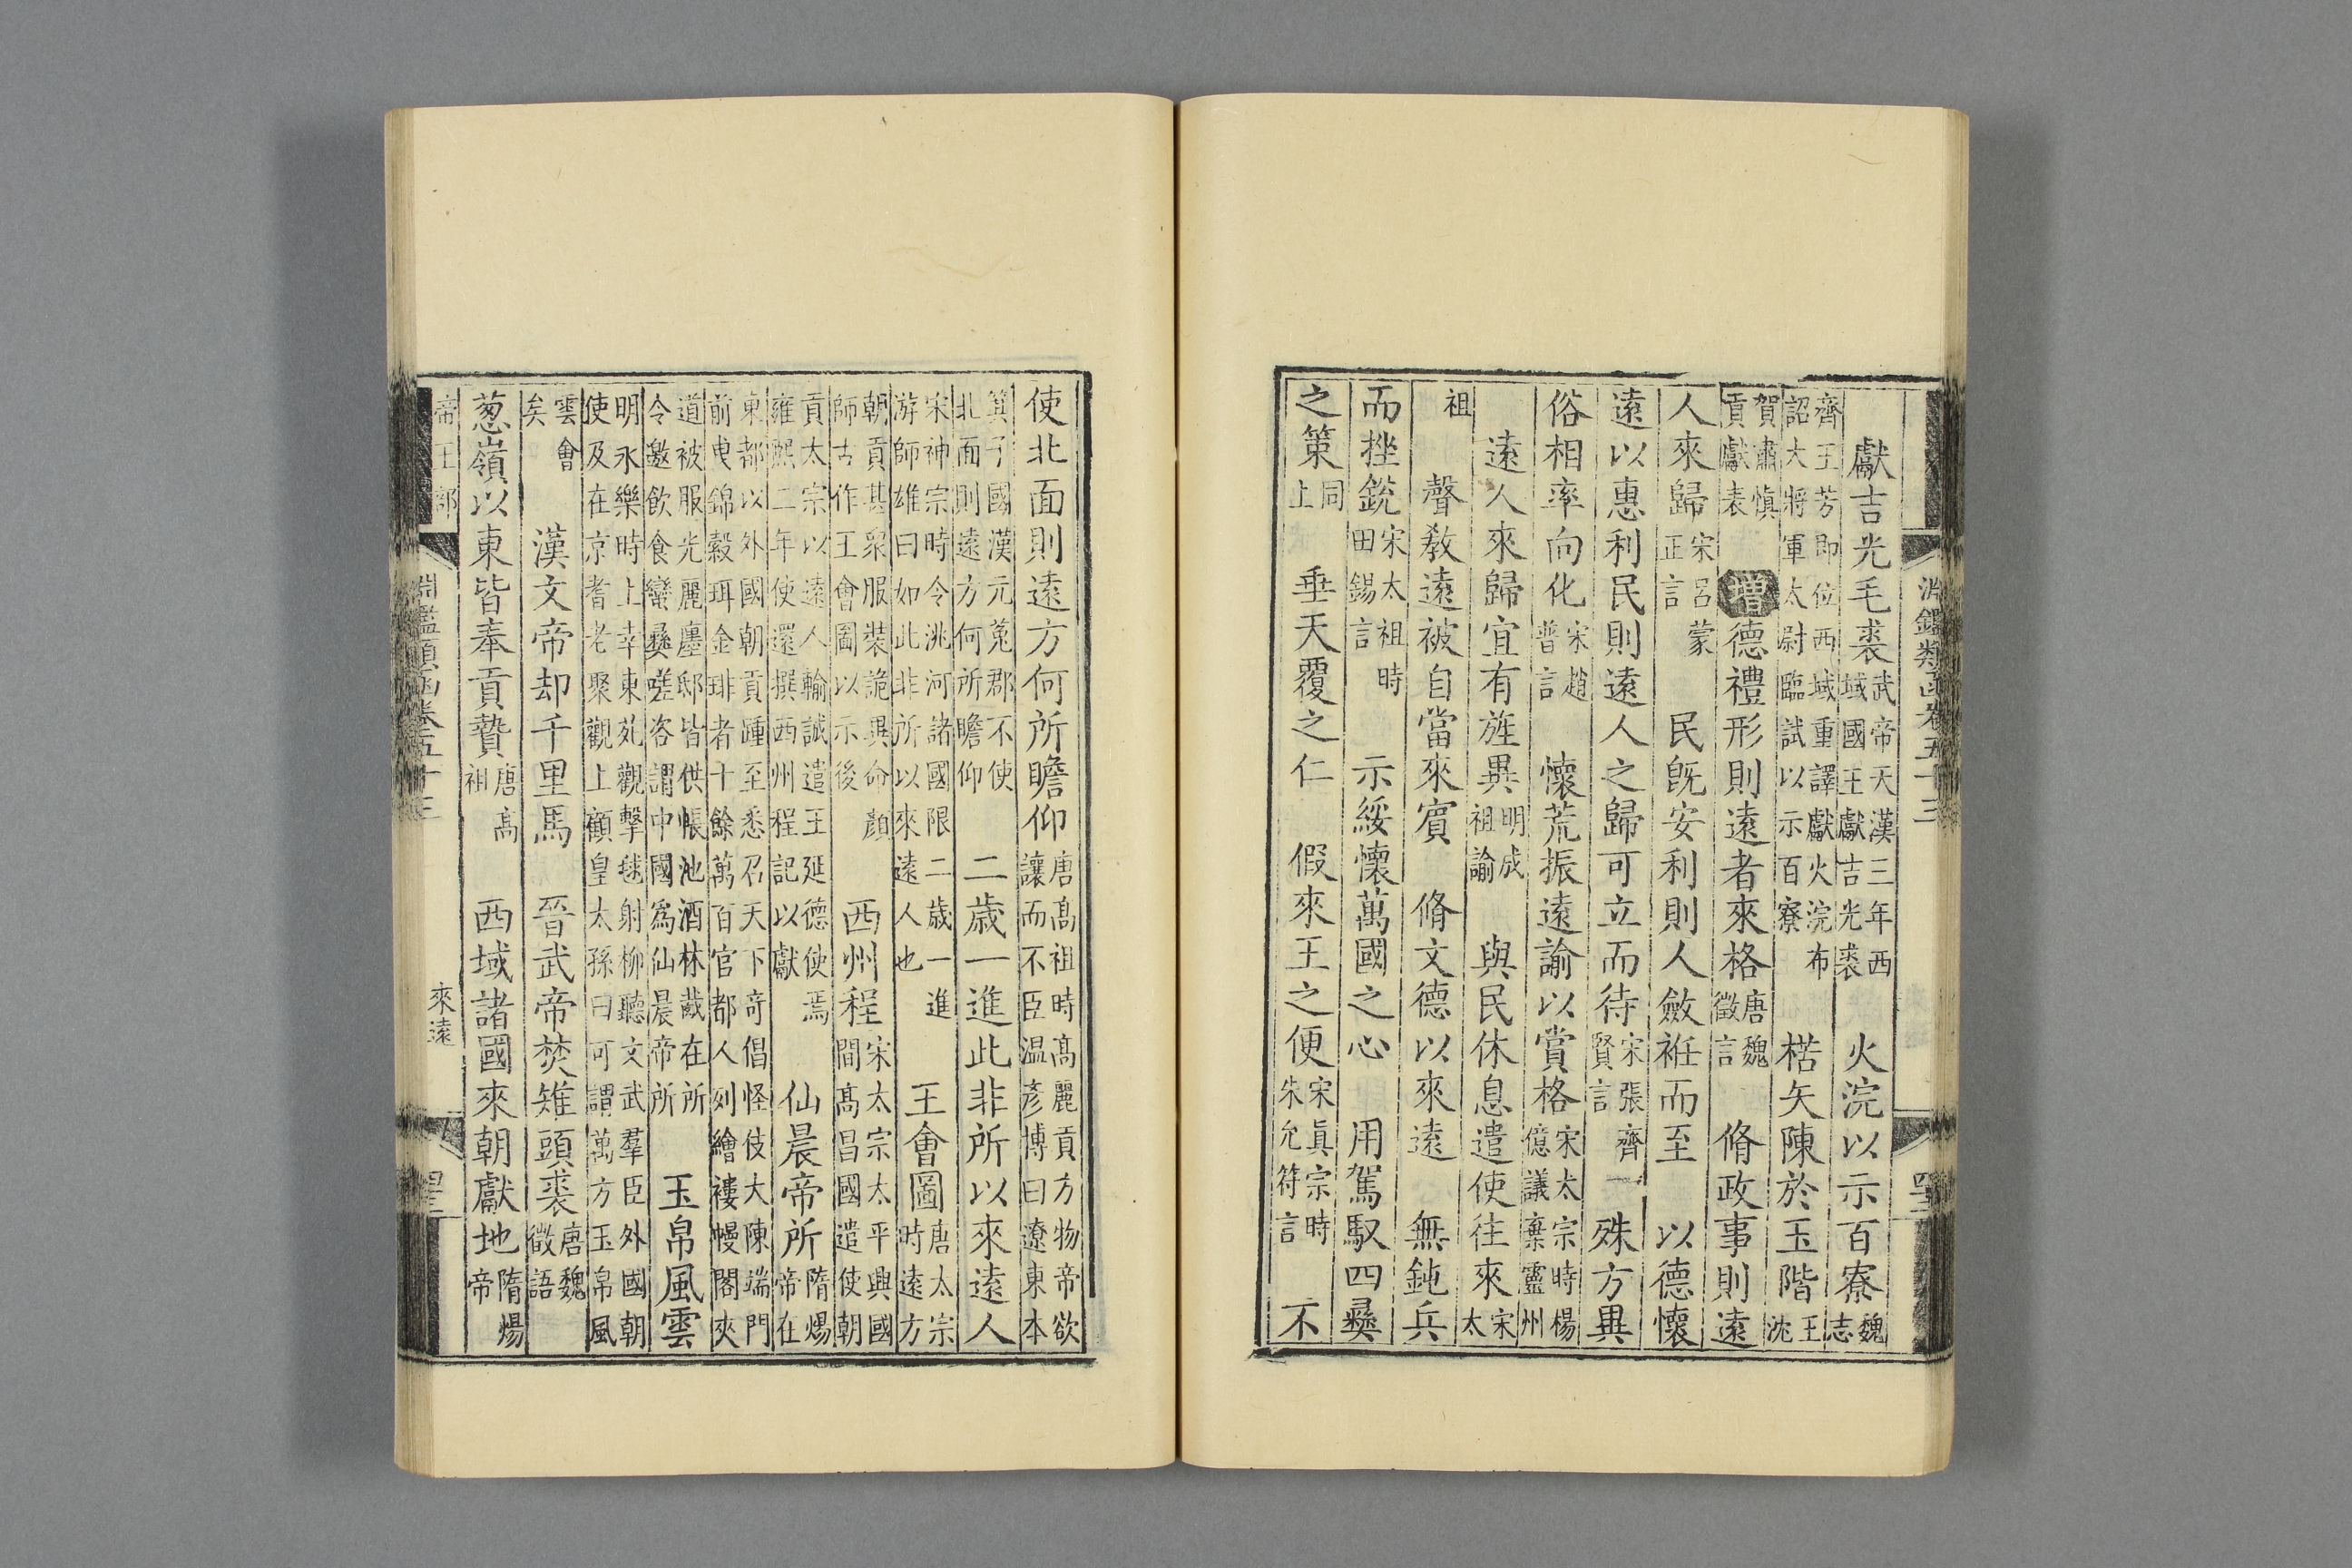 淵鑑類函卷五十三
獻吉光毛裘武帝天漢三年西域國王獻吉光裘 火浣以示百寮魏志
齊王芳即位西域重譯獻火浣布詔大將軍太尉臨試以示百寮 楛矢陳於玉階王沈
賀肅慎貢獻表 增德禮形則遠者來格唐魏徵言 脩政事則遠
人來歸宋呂蒙正言 民旣安利則人斂袵而至 以德懷
遠以惠利民則遠人之歸可立而待宋張齊賢言 殊方異
俗相率向化宋趙普言 懷荒振遠諭以賞格宋太宗時楊億議棄靈州
遠人來歸宜有旌異明成祖諭 與民休息遣使往來宋太
祖 聲敎遠被自當來賓 脩文德以來遠 無鈍兵
而挫銳宋太祖時田錫言 示綏懷萬國之心 用駕馭四彝
之策同上 垂天覆之仁 假來王之便宋眞宗時朱允符言 不
使北面則遠方何所瞻仰唐高祖時高麗貢方物帝欲讓而不臣温彦博曰遼東本
箕子國漢元菟郡不使北面則遠方何所瞻仰 二歲一進此非所以來遠人
宋神宗時令洮河諸國限二歲一進游師雄曰如此非所以來遠人也 王會圖唐太宗時遠方
朝貢甚衆服裝詭異命顏師古作王會圖以示後 西州程宋太宗太平興國間高昌國遣使朝
貢太宗以遠人輸誠遣王延德使焉雍熙二年使還撰西州程記以獻 仙晨帝所隋煬帝在
東都以外國朝貢踵至悉召天下奇倡怪伎大陳端門前曳錦縠珥金琲者十餘萬百官都人列繒褸幔閣夾
道被服光麗廛邸皆供帳池酒林胾在所令邀飲食蠻彝嗟咨謂中國爲仙晨帝所 玉帛風雲
明永樂時上幸東苑觀擊毬射柳聽文武羣臣外國朝使及在京耆老聚觀上顧皇太孫曰可謂萬方玉帛風
雲會矣 漢文帝却千里馬 晉武帝焚雉頭裘唐魏徵語
葱嶺以東皆奉貢贄唐高祖 西域諸國來朝獻地隋煬帝
帝王部 淵鑑類函卷五十三 來遠